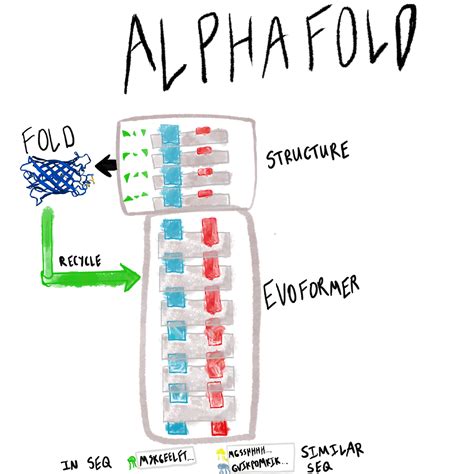 ALPHAFOLD
FOLD
STRUCTURE
RECYCLE
EVOFORMER
IN SEQ
MSKGEELFT...
MGSSHHHH...
SIMILAR
SEQ